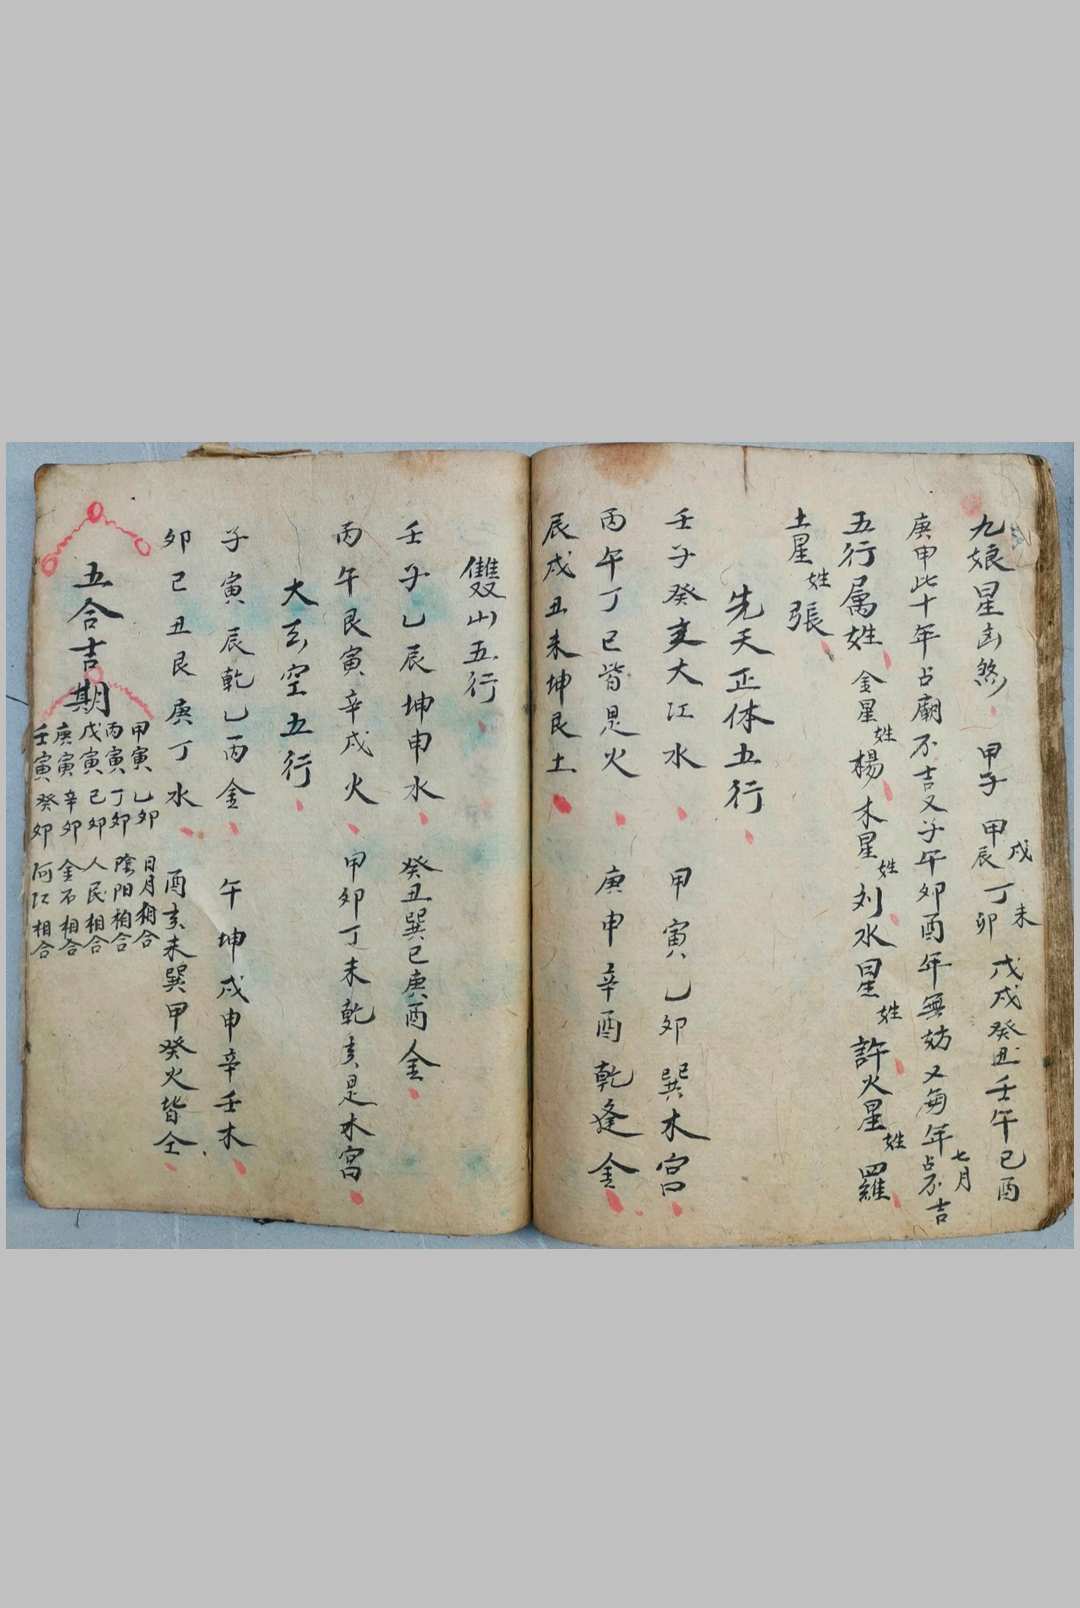 九娘星凶煞 甲子 甲辰戌 丁卯未 戊戌癸丑壬午己酉
庚申此十年占廟不吉又子午卯酉年無妨又每年七月占不吉
五行属姓 金星姓楊 木星姓刘 水星姓許 火星姓羅
土星姓張
先天正体五行
壬子癸亥大江水 甲寅乙卯巽木宮
丙午丁巳皆是火 庚申辛酉乾逢金
辰戌丑未坤艮土
雙山五行
壬子乙辰坤申水 癸丑巽巳庚酉金
丙午艮寅辛戌火 甲卯丁未乾亥是木宮
大玄空五行
子寅辰乾乙丙金 午坤戌申辛壬木
卯巳丑艮庚丁水 酉亥未巽甲癸火皆全
五合吉期
甲寅乙卯 日月相合
丙寅丁卯 陰阳相合
戊寅己卯 人民相合
庚寅辛卯 金石相合
壬寅癸卯 河江相合